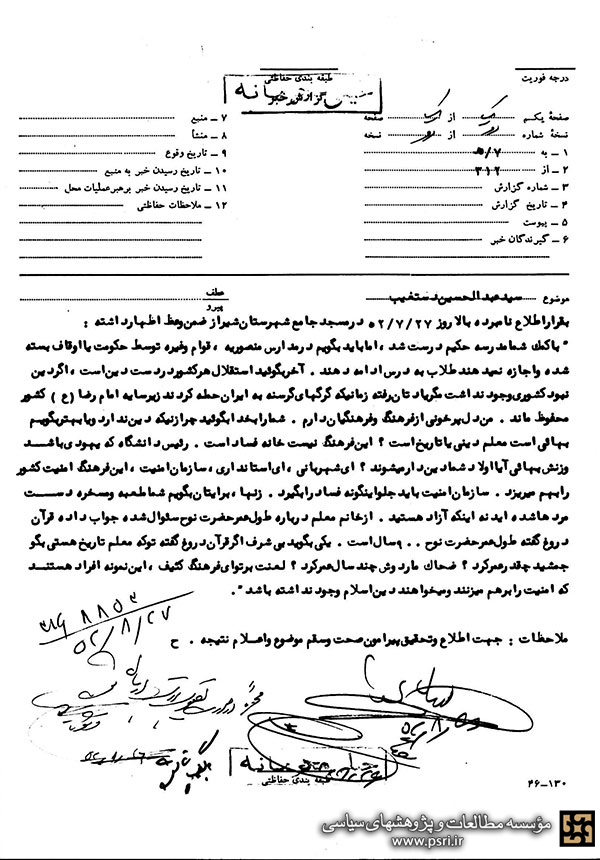 درجه فوریت
طبقه بندی حفاظتی
خیلی محرمانه
گزارش خبر
صفحهٔ یکم یک از یک صفحه
نسخهٔ شماره از نسخه
۱ ـ به ۷/ﻫ
۲ ـ از ۳۱۲
۳ ـ شماره گزارش
۴ ـ تاریخ گزارش
۵ ـ پیوست
۶ ـ گیرندگان خبر
۷ ـ منبع
۸ ـ منشأ
۹ ـ تاریخ وقوع
۱۰ ـ تاریخ رسیدن خبر به منبع
۱۱ ـ تاریخ رسیدن خبر برهبرعملیات محل
۱۲ ـ ملاحظات حفاظتی
موضوع سید عبدالحسین دستغیب
عطف
پیرو
بقراراطلاع نامبرده بالا روز ۵۲/۷/۲۷ درمسجد جامع شهرستان شیراز ضمن وعظ اظهارداشته :
" باکمک شما مدرسه حکیم درست شد ، اما باید بگویم درمدارس منصوریه ، قوام وغیره توسط حکومت یا اوقاف بسته
شده واجازه نمید هند طلاب به درس ادامه د هند . آخربگوئید استقلال هرکشوردردست دین است ، اگردین
نبود کشوری وجود نداشت مگریاد تان رفته زمانیکه گرگهای گرسنه به ایران حمله کردند زیرسایه امام رضا ( ع ) کشور
محفوظ ماند . من دل پرخونی ازفرهنگ وفرهنگیان دارم . شمارا بخدا بگوئید چرا زنیکه دین ندارد ویا بهتربگویم
بهائی است معلم دینی یا تاریخ است ؟ این فرهنگ نیست خانه فساد است . رئیس دانشگاه که یهودی باشد
وزنش بهائی آیا اولاد شما دین دارمیشوند ؟ ای شهربانی ، ای استانداری ، سازمان امنیت ، این فرهنگ امنیت کشور
رابهم میریزد . سازمان امنیت باید جلواینگونه فساد رابگیرد . زنها ، برایتان بگویم شما طعمه ومسخره دست
مردها شده اید نه اینکه آزاد هستید . ازخانم معلم درباره طول عمرحضرت نوح سئوال شده جواب داده قرآن
دروغ گفته طول عمرحضرت نوح ۹۰۰ سال است . یکی بگوید بی شرف اگرقرآن دروغ گفته توکه معلم تاریخ هستی بگو
جمشید چقدرعمرکرد ؟ ضحاک ماردوش چند سال عمرکرد ؟ لعنت برتوای فرهنگ کثیف ، این نمونه افراد هستند
که امنیت رابرهم میزنند ومیخواهند دین اسلام وجود نداشته باشد " .
ملاحظات : جهت اطلاع وتحقیق پیرامون صحت وسقم موضوع واعلام نتیجه . ح
۵۲/۸/۲۷
طبقه بندی حفاظتی
۴۶-۱۳۰
مؤسسه مطالعات و پژوهشهای سیاسی
www.psri.ir